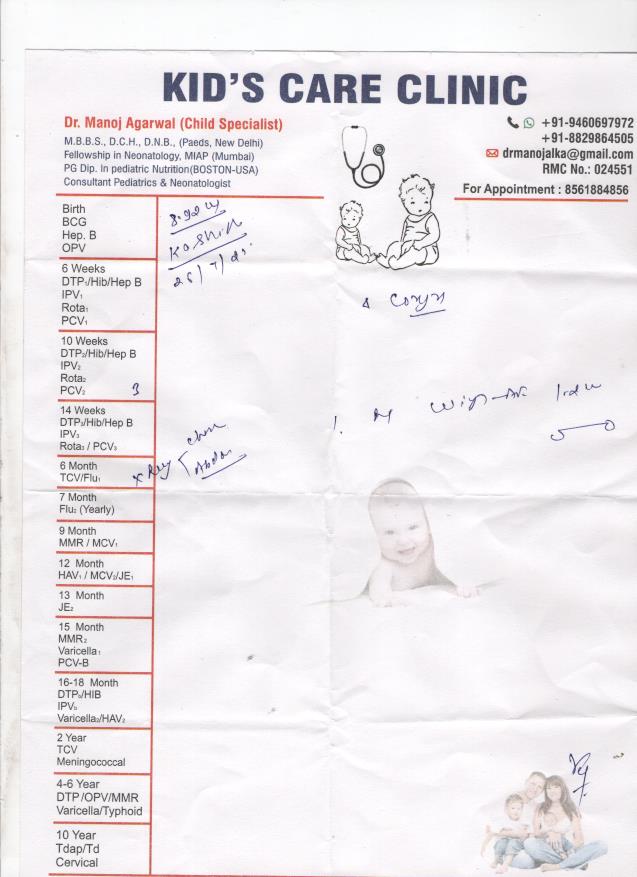 KID'S CARE CLINIC
Dr. Manoj Agarwal (Child Specialist)
M.B.B.S., D.C.H., D.N.B., (Paeds, New Delhi)
Fellowship in Neonatology, MIAP (Mumbai)
PG Dip. In pediatric Nutrition(BOSTON-USA)
Consultant Pediatrics & Neonatologist
+91-9460697972
+91-8829864505
drmanojalka@gmail.com
RMC No.: 024551
For Appointment : 8561884856
Birth
BCG
Hep. B
OPV
6 Weeks
DTP₁/Hib/Hep B
IPV₁
Rota₁
PCV₁
10 Weeks
DTP₂/Hib/Hep B
IPV₂
Rota₂
PCV₂
14 Weeks
DTP₃/Hib/Hep B
IPV₃
Rota₃ / PCV₃
6 Month
TCV/Flu₁
7 Month
Flu₂ (Yearly)
9 Month
MMR / MCV₁
12 Month
HAV₁ / MCV₂/JE₁
13 Month
JE₂
15 Month
MMR₂
Varicella₁
PCV-B
16-18 Month
DTP₅/HIB
IPV₅
Varicella₂/HAV₂
2 Year
TCV
Meningococcal
4-6 Year
DTP/OPV/MMR
Varicella/Typhoid
10 Year
Tdap/Td
Cervical